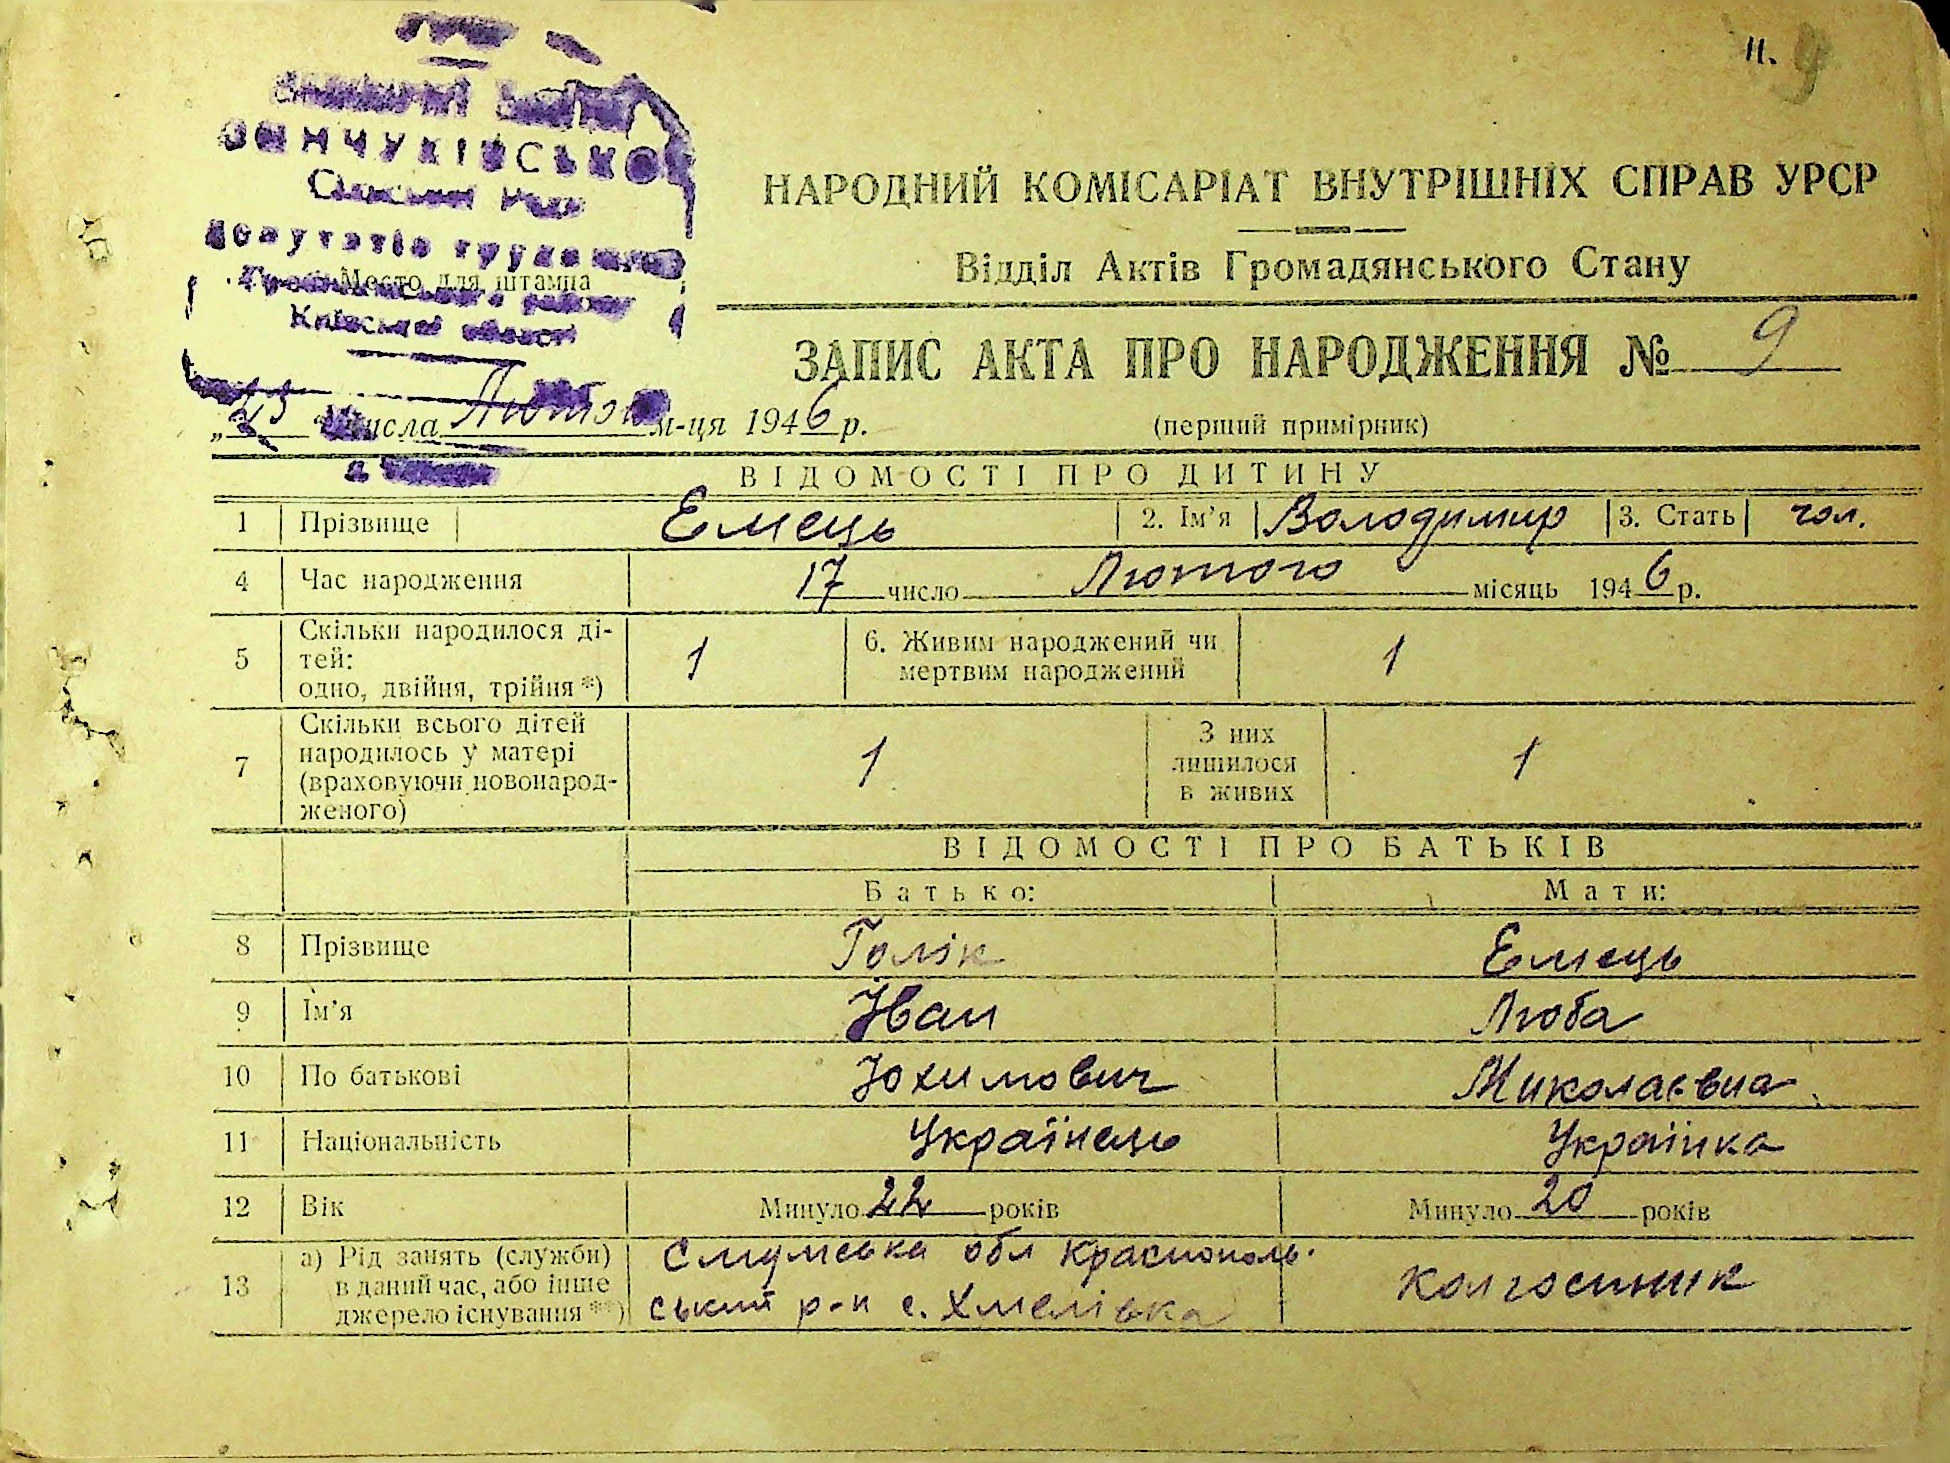 11. 9
НАРОДНИЙ КОМІСАРІАТ ВНУТРІШНІХ СПРАВ УРСР
Відділ Актів Громадянського Стану
Сільської Ради
депутатів трудящих
Место для штампа
району
Київської області
ЗАПИС АКТА ПРО НАРОДЖЕННЯ № 9
(перший примірник)
„ “ числа Лютого м-ця 1946 р.
ВІДОМОСТІ ПРО ДИТИНУ
1 Прізвище Емець 2. Ім'я Володимир 3. Стать чол.
4 Час народження 17 число Лютого місяць 1946 р.
5 Скільки народилося ді-
тей:
одно, двійня, трійня *) 1 6. Живим народжений чи
мертвим народжений 1
7 Скільки всього дітей
народилось у матері
(враховуючи новонарод-
женого) 1 З них
лишилося
в живих 1
ВІДОМОСТІ ПРО БАТЬКІВ
Батько: Мати:
8 Прізвище Голік Емець
9 Ім'я Іван Люба
10 По батькові Юхимович Миколаєвна
11 Національність Українець Українка
12 Вік Минуло 22 років Минуло 20 років
13 а) Рід занять (служби)
в даний час, або інше
джерело існування **) Сумська обл Краснополь-
ський р-н с. Хмелівка колгоспник